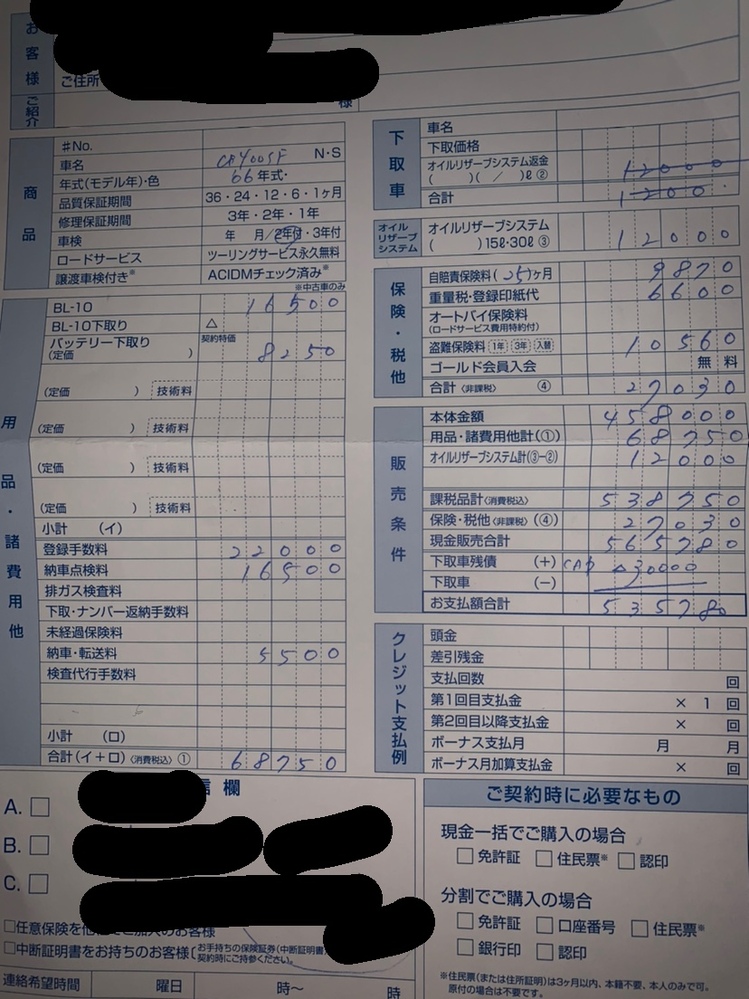 お客様
ご住所
ご紹介
様
商品
#No.
車名 CB400SF N・S
年式(モデル年)・色 66年式・
品質保証期間 36・24・12・6・1ヶ月
修理保証期間 3年・2年・1年
車検 年 月/2年付・3年付
ロードサービス ツーリングサービス永久無料
譲渡車検付き※ ACIDMチェック済み※
※中古車のみ
用品・諸費用他
BL-10 16500
BL-10下取り △
バッテリー下取り 契約特価
(定価 ) 8250
(定価 ) 技術料
(定価 ) 技術料
(定価 ) 技術料
(定価 ) 技術料
小計 (イ)
登録手数料 22000
納車点検料 16500
排ガス検査料
下取・ナンバー返納手数料
未経過保険料
納車・転送料 5500
検査代行手数料
小計 (ロ)
合計(イ+ロ)〈消費税込〉① 68750
下取車
車名
下取価格
オイルリザーブシステム返金
( )( / )ℓ② 12000
合計 12000
オイルリザーブシステム
オイルリザーブシステム
( )15ℓ・30ℓ③ 12000
保険・税他
自賠責保険料(25)ヶ月 9870
重量税・登録印紙代 6600
オートバイ保険料
(ロードサービス費用特約付)
盗難保険料 1年 3年 入替 10560
ゴールド会員入会 無料
合計〈非課税〉 ④ 27030
販売条件
本体金額 458000
用品・諸費用他計(①) 68750
オイルリザーブシステム計(③−②) 12000
課税品計〈消費税込〉 538750
保険・税他〈非課税〉(④) 27030
現金販売合計 565780
下取車残債 (+) CAP △30000
下取車 (−)
お支払額合計 535780
クレジット支払例
頭金
差引残金
支払回数 回
第1回目支払金 × 1 回
第2回目以降支払金 × 回
ボーナス支払月 月 月
ボーナス月加算支払金 × 回
信欄
A. □
B. □
C. □
□任意保険を他でご加入のお客様
□中断証明書をお持ちのお客様
お手持ちの保険証券(中断証明書)
契約時にご持参ください。
連絡希望時間 曜日 時〜 時
ご契約時に必要なもの
現金一括でご購入の場合
□免許証 □住民票※ □認印
分割でご購入の場合
□免許証 □口座番号 □住民票※
□銀行印 □認印
※住民票(または住所証明)は3ヶ月以内、本籍不要、本人のみで可。
原付の場合は不要です。